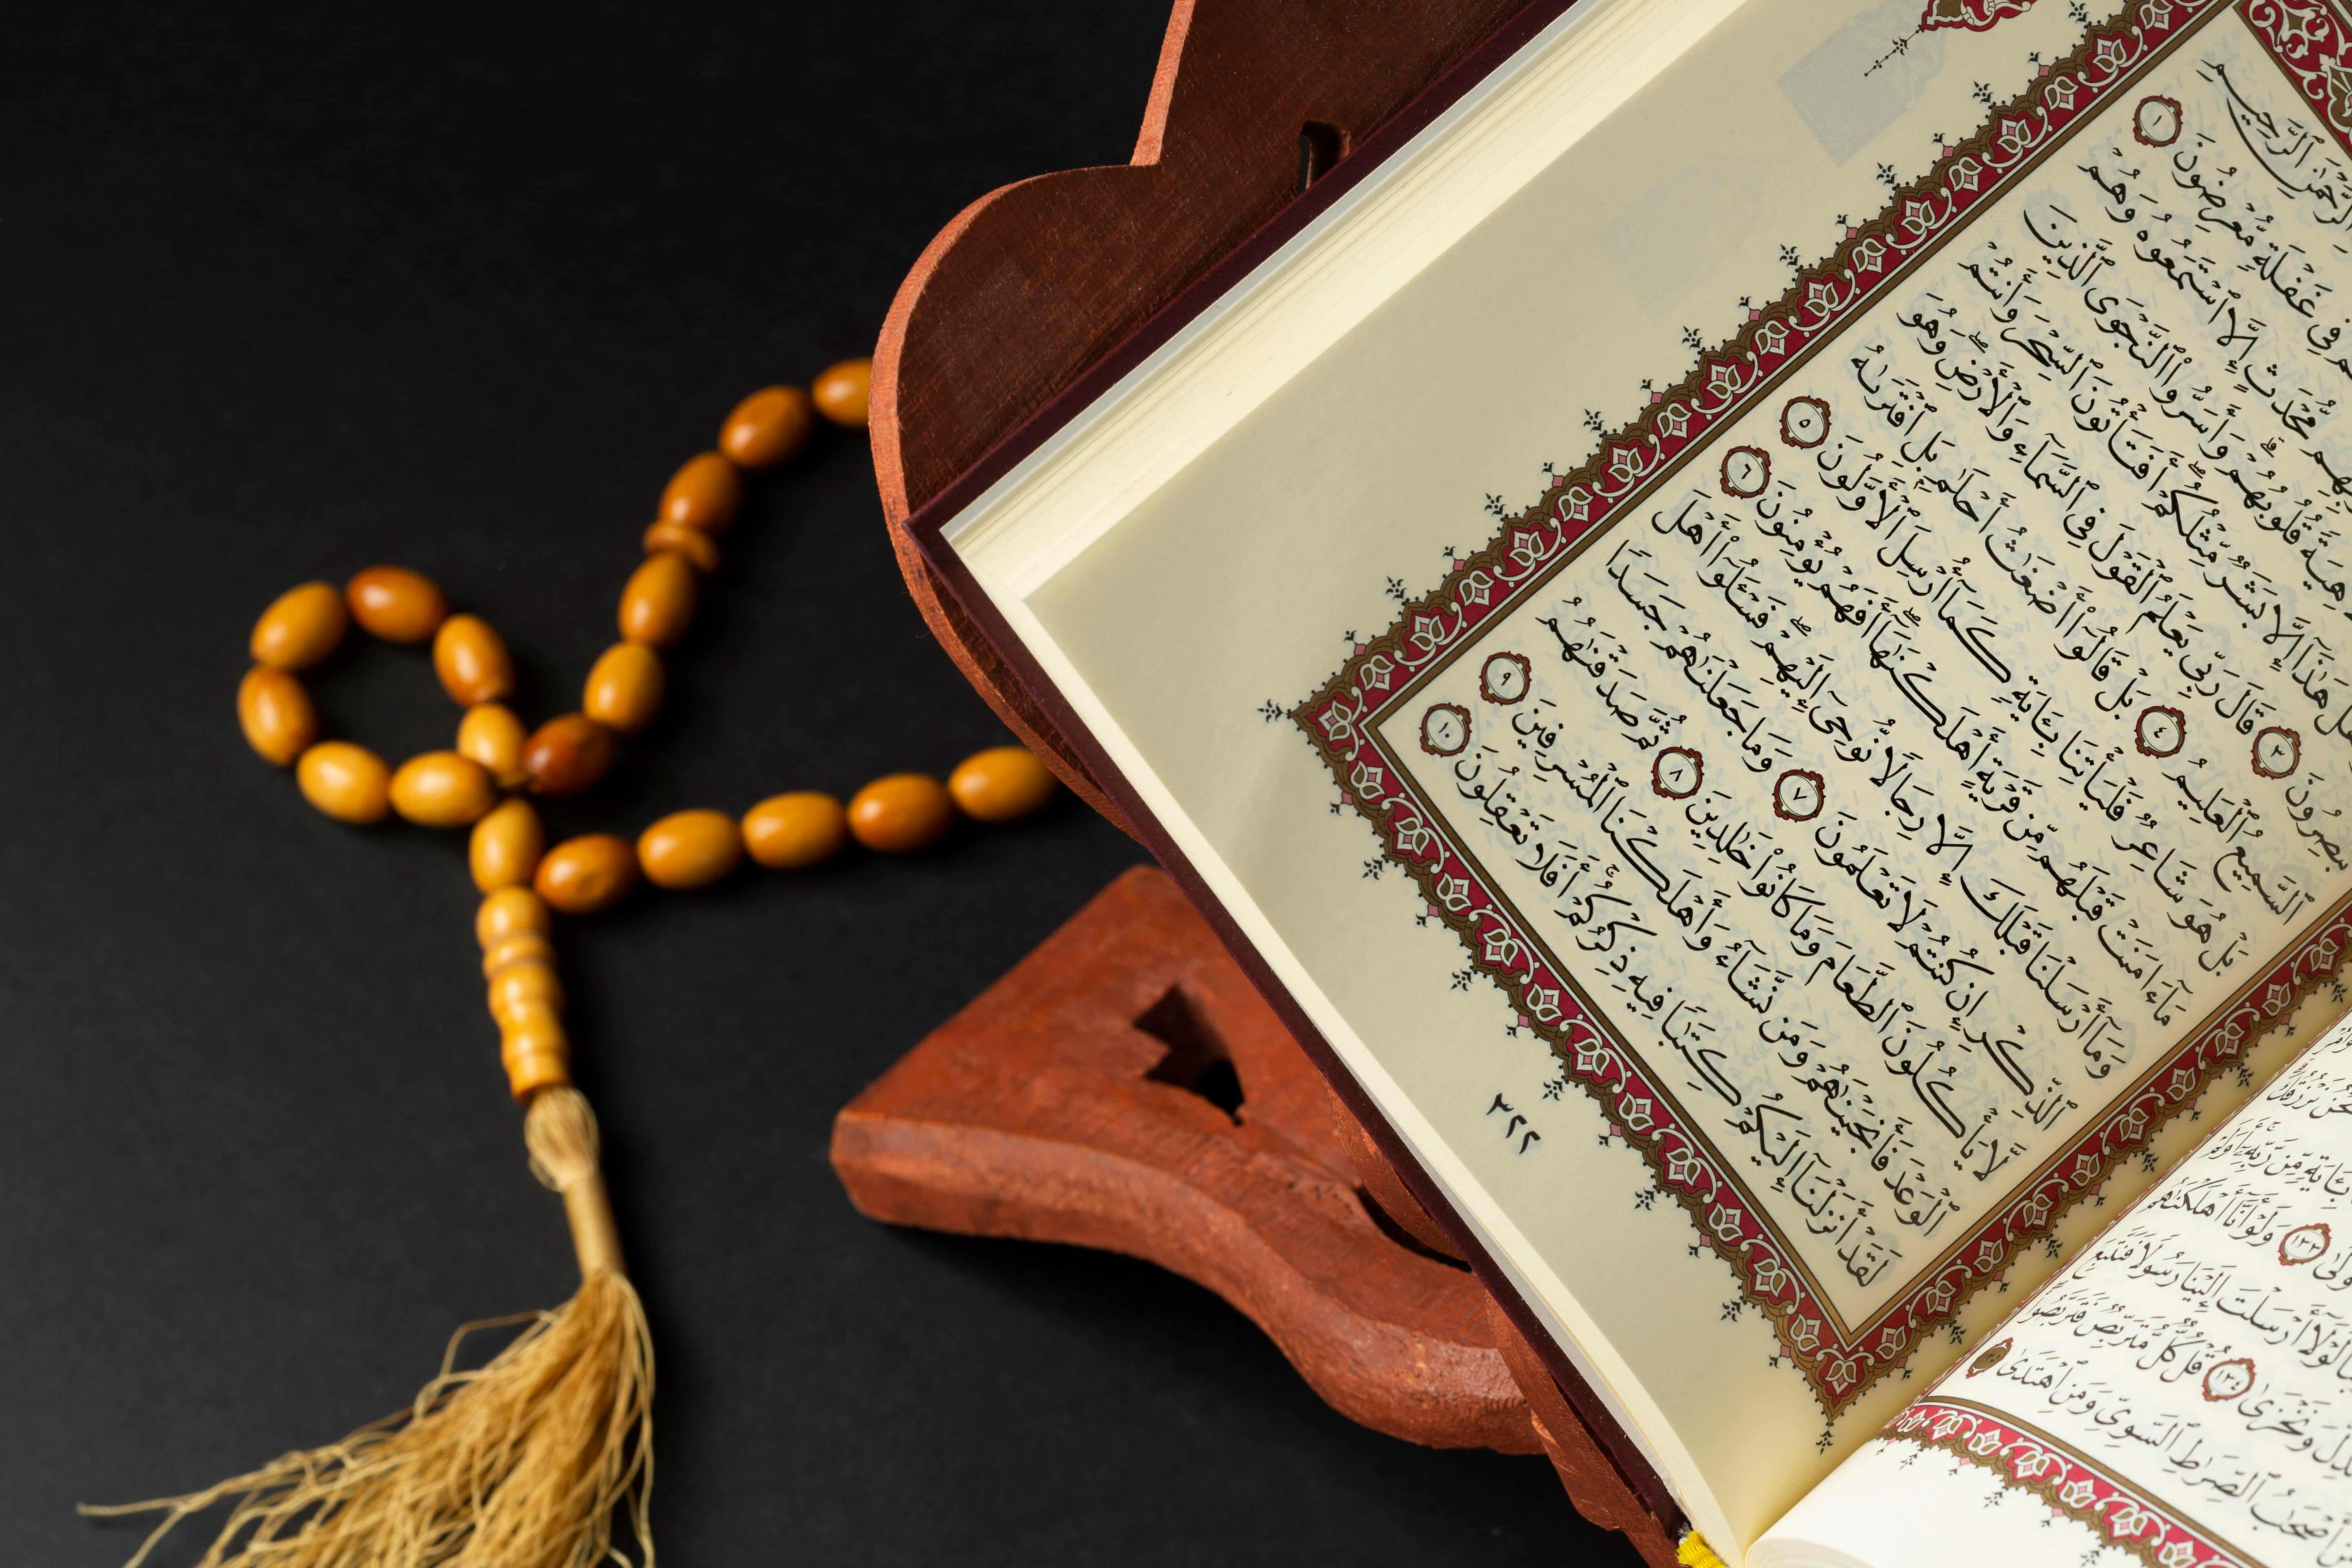 نَّحْنُ نَرْزُقُكَ
بِـَٔايَةٍ مِّن رَّبِّهِۦٓ أَوَلَمْ
١٣٣ وَلَوْ أَنَّآ أَهْلَكْنَٰهُم
لَوْلَآ أَرْسَلْتَ إِلَيْنَا رَسُولًا فَنَتَّبِعَ
وَنَخْزَىٰ ١٣٤ قُلْ كُلٌّ مُّتَرَبِّصٌ فَتَرَبَّصُوا۟
أَصْحَٰبُ ٱلصِّرَٰطِ ٱلسَّوِىِّ وَمَنِ ٱهْتَدَىٰ
ٱلرَّحْمَٰنِ ٱلرَّحِيمِ
فِى غَفْلَةٍ مُّعْرِضُونَ ١
مُّحْدَثٍ إِلَّا ٱسْتَمَعُوهُ وَهُمْ
قُلُوبُهُمْ ۗ وَأَسَرُّوا۟ ٱلنَّجْوَى ٱلَّذِينَ
هَلْ هَٰذَآ إِلَّا بَشَرٌ مِّثْلُكُمْ ۖ أَفَتَأْتُونَ ٱلسِّحْرَ وَأَنتُمْ
تُبْصِرُونَ ٣ قَالَ رَبِّى يَعْلَمُ ٱلْقَوْلَ فِى ٱلسَّمَآءِ وَٱلْأَرْضِ ۖ وَهُوَ
ٱلسَّمِيعُ ٱلْعَلِيمُ ٤ بَلْ قَالُوٓا۟ أَضْغَٰثُ أَحْلَٰمٍۭ بَلِ ٱفْتَرَىٰهُ
بَلْ هُوَ شَاعِرٌ فَلْيَأْتِنَا بِـَٔايَةٍ كَمَآ أُرْسِلَ ٱلْأَوَّلُونَ ٥
مَآ ءَامَنَتْ قَبْلَهُم مِّن قَرْيَةٍ أَهْلَكْنَٰهَآ ۖ أَفَهُمْ يُؤْمِنُونَ ٦
وَمَآ أَرْسَلْنَا قَبْلَكَ إِلَّا رِجَالًا نُّوحِىٓ إِلَيْهِمْ ۖ فَسْـَٔلُوٓا۟ أَهْلَ
ٱلذِّكْرِ إِن كُنتُمْ لَا تَعْلَمُونَ ٧ وَمَا جَعَلْنَٰهُمْ جَسَدًا
لَّا يَأْكُلُونَ ٱلطَّعَامَ وَمَا كَانُوا۟ خَٰلِدِينَ ٨ ثُمَّ صَدَقْنَٰهُمُ
ٱلْوَعْدَ فَأَنجَيْنَٰهُمْ وَمَن نَّشَآءُ وَأَهْلَكْنَا ٱلْمُسْرِفِينَ ٩
لَقَدْ أَنزَلْنَآ إِلَيْكُمْ كِتَٰبًا فِيهِ ذِكْرُكُمْ ۖ أَفَلَا تَعْقِلُونَ ١٠
٣٢٢